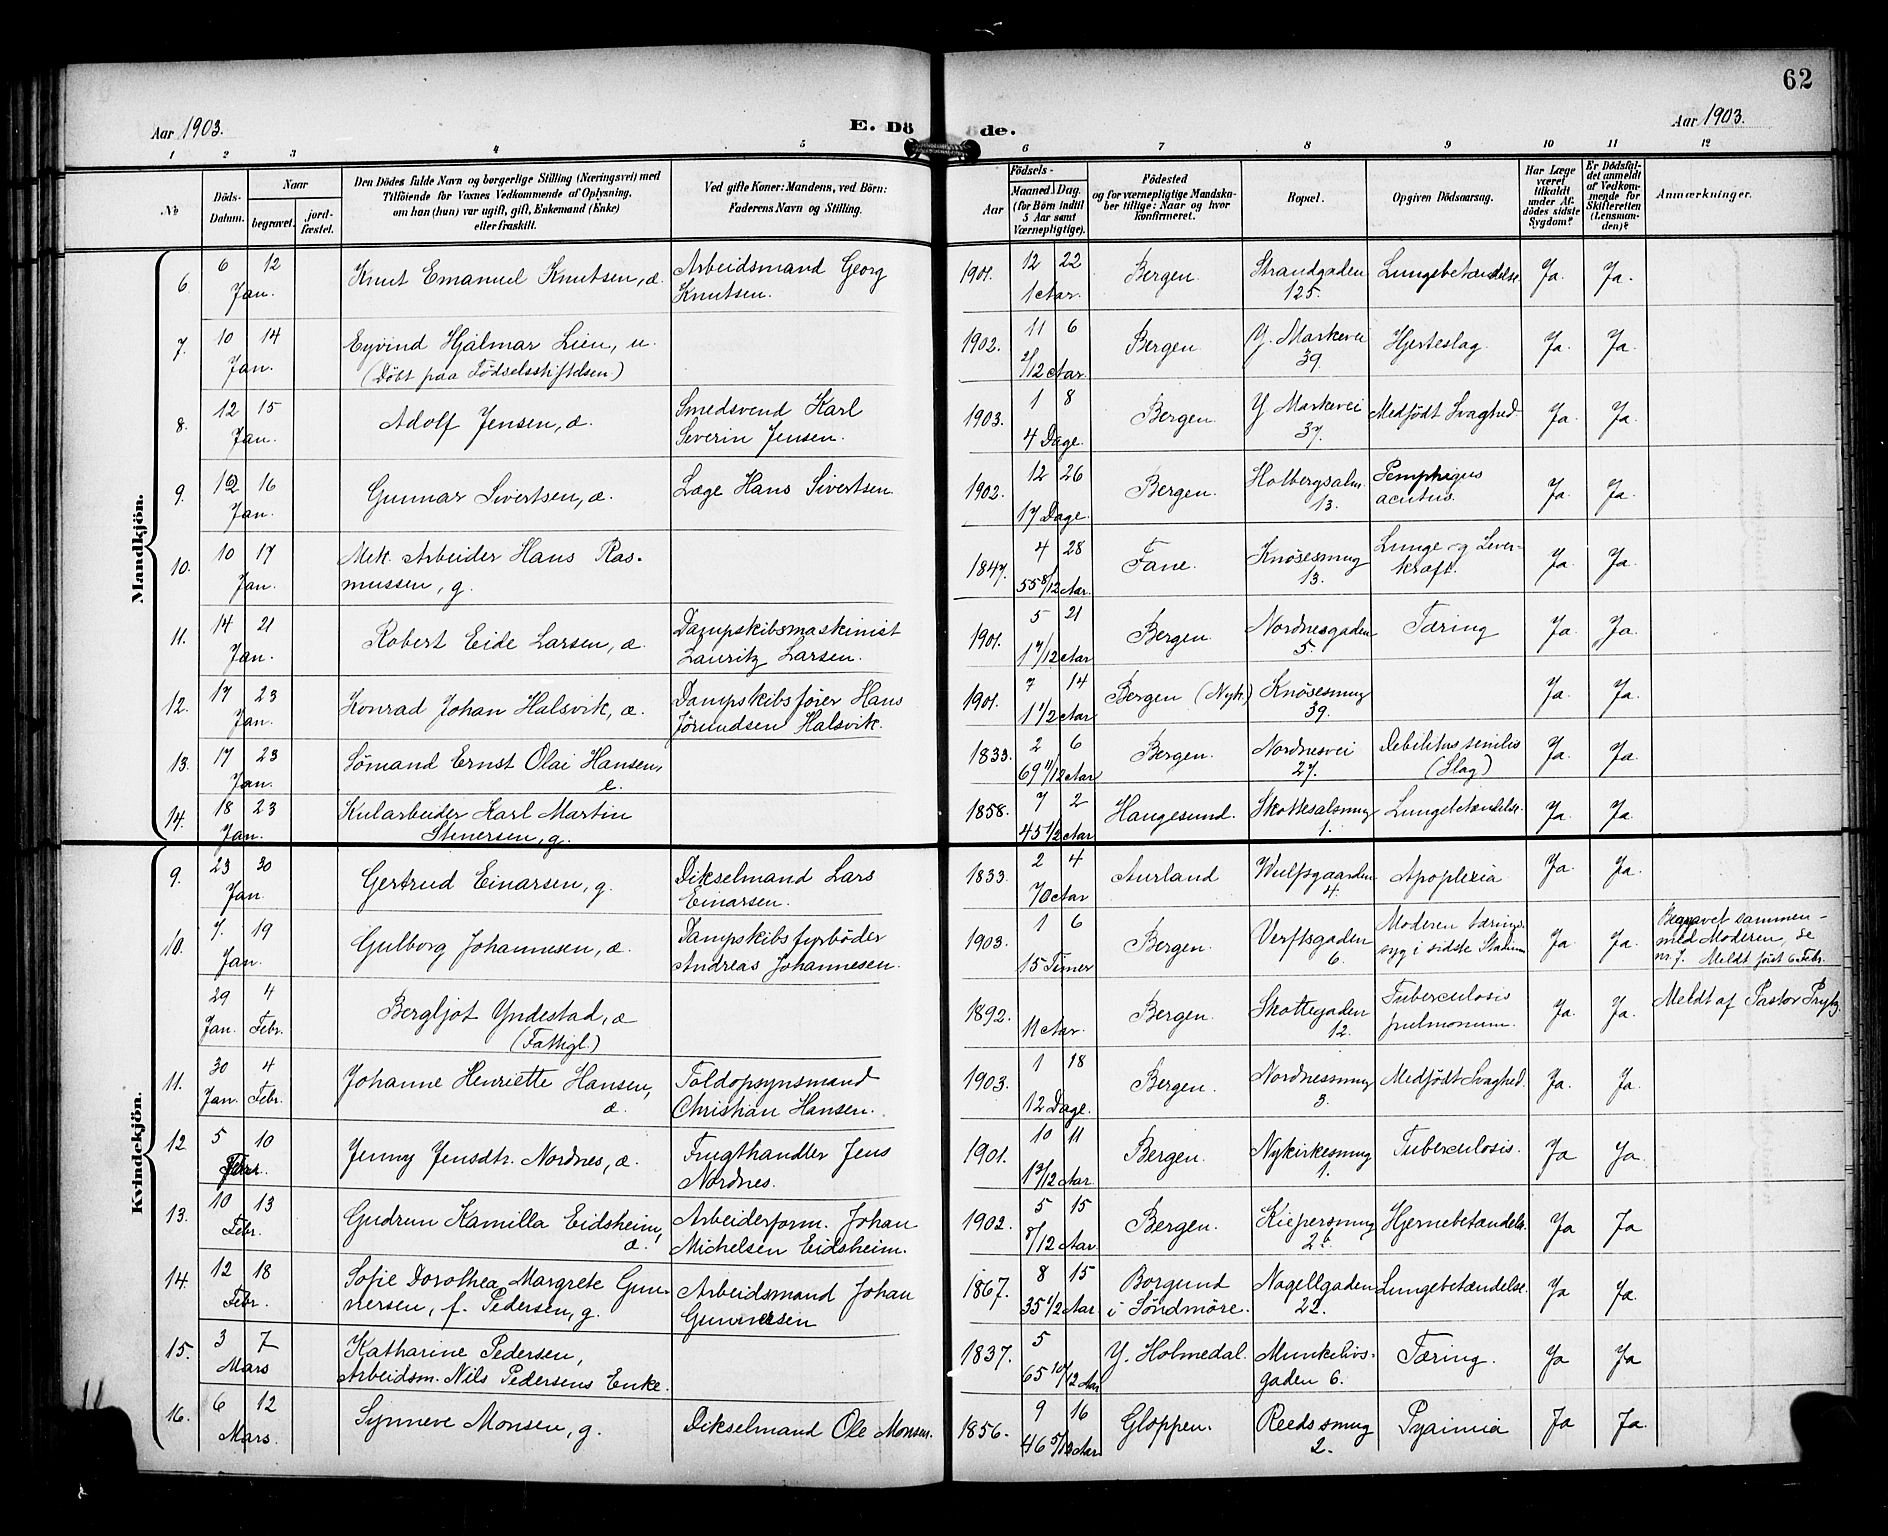 62
Aar 1903.
E. Döde.
Aar 1903.
1 2 3 4 5 6 7 8 9 10 11 12
No
Döds-Datum.
Naar
begravet.
jord-fæstet.
Den Dödes fulde Navn og borgerlige Stilling (Næringsvei) med
Tilföiende for Voxnes Vedkommende af Oplysning,
om han (hun) var ugift, gift, Enkemand (Enke)
eller fraskilt.
Ved gifte Koner: Mandens, ved Börn:
Faderens Navn og Stilling.
Födsels-
Aar
Maaned. Dag.
(for Börn indtil
5 Aar samt
Værnepligtige).
Födested
og for værnepligtige Mandska-
ber tillige: Naar og hvor
konfirmeret.
Bopæl.
Opgiven Dödsaarsag.
Har Læge
været
tilkaldt
under Af-
dödes sidste
Sygdom?
Er Dödsfal-
det anmeldt
af Vedkom-
mende for
Skifteretten
(Lensman-
den)?
Anmærkninger.
Mandkjön.
6. 6 12 Jan. Knut Emanuel Knutsen, æ. Arbeidsmand Georg
Knutsen. 1901. 12 22 1 Aar. Bergen Strandgaden
125. Lungebetændelse Ja. Ja.
7. 10 14 Jan. Eyvind Hjalmar Lien, u.
(Døbt paa Fødselsstiftelsen) 1902. 11 6 2/12 Aar. Bergen Y. Markevei
39. Hjerteslag Ja. Ja.
8. 12 15 Jan. Adolf Jensen, æ. Smedsvend Karl
Severin Jensen. 1903. 1 8 4 Dage. Bergen Y. Markevei
37. Medfødt Svaghed Ja. Ja.
9. 12 16 Jan. Gunnar Sivertsen, æ. Læge Hans Sivertsen 1902. 12 26 17 Dage. Bergen. Holbergsalm.
13. Pemphigus
acutus. Ja. Ja.
10. 10 17 Jan. Mek. Arbeider Hans Ras-
mussen, g. 1847. 4 28 55 8/12 Aar. Fane. Knøsesmug
13. Lunge og Lever-
kræft. Ja. Ja.
11. 14 21 Jan. Robert Eide Larsen, æ. Dampskibsmaskinist
Lauritz Larsen. 1901. 5 21 1 7/12 Aar Bergen Nordnesgaden
5. Tæring Ja. Ja.
12. 17 23 Jan. Konrad Johan Halsvik, æ. Dampskibsfører Hans
Jørundsen Halsvik. 1901. 7 14 1 1/2 Aar Bergen (Nyk.) Knøsesmug
39. Ja. Ja.
13. 17 23 Jan. Sømand Ernst Olai Hansen,
e. 1833. 2 6 69 11/12 Aar Bergen. Nordnesvei
27. Debilitas senilis
(Slag) Ja. Ja.
14. 18 23 Jan. Kularbeider Karl Martin
Stenersen, g. 1858. 7 2 45 1/2 Aar Haugesund. Skottesalsmug
1. Lungebetændelse. Ja. Ja.
Kvindekjön.
9. 23 30 Jan. Gertrud Einarsen, g. Dikselmand Lars
Einarsen. 1833. 2 4 70 Aar Aurland Wulfsgaarden
4. Apoplexia Ja. Ja.
10. 7. 19 Jan. Gulborg Johannesen, æ. Dampskibsfyrbøder
Andreas Johannesen. 1903. 1 6 15 Timer Bergen. Verftsgaden
6. Moderen tærings-
syg i sidste Stadium Ja. Ja. Begravet sammen-
med Moderen, se
nr. 7. Meldt først 6 Febr.
29 4
Jan. Febr. Bergljot Yndestad, æ
(Fattigl.) 1892. 11 Aar. Bergen. Skottegaden
12. Tuberculosis
pulmonum. Ja. Ja. Meldt af Pastor Prytz.
11. 30 4
Jan. Febr. Johanne Henriette Hansen,
æ. Toldopsynsmand
Christian Hansen. 1903. 1 18 12 Dage. Bergen. Nordnessmug
3. Medfødt Svaghed. Ja. Ja.
12. 5 10 Febr. Jenny Jensdtr. Nordnes, æ. Frugthandler Jens
Nordnes. 1901. 10 11 1 3/12 Aar. Bergen. Nykirkesmug
1. Tuberculosis. Ja Ja
13. 10 13 Febr. Gudrun Kamilla Eidsheim,
æ. Arbeiderform. Johan
Michelsen Eidsheim. 1902. 5 15 8/12 Aar. Bergen. Kiepersmug
2b. Hjernebetændelse Ja Ja
14. 12 18 Febr. Sofie Dorothea Margrete Gun-
nersen, f. Pedersen, g. Arbeidsmand Johan
Gunnersen 1867. 8 15 35 1/2 Aar Borgund
i Søndmøre. Nagellgaden
22. Lungebetændelse. Ja Ja.
15. 3 7 Mars Katharine Pedersen,
Arbeidsm. Nils Pedersens Enke. 1837. 5 65 10/12 Aar Y. Holmedal. Munkelivs-
gaden 6. Tæring. Ja Ja
16. 6 12 Mars. Synneve Monsen, g. Dikselmand Ole Monsen. 1856. 9 16 46 5/12 Aar Gloppen. Reedssmug
2. Pyaimia Ja Ja.